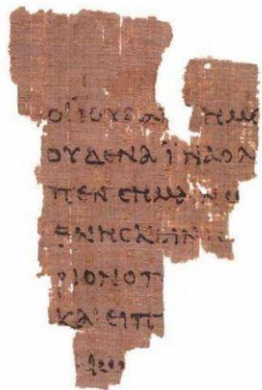 ΟΙ ΙΟΥΔΑΙ ΗΜΕ
ΟΥΔΕΝΑ ΪΝΑ Ο Λ
ΠΕΝ CΗΜΑΙΝω
ΘΝΗCΚΕΙΝ
ΡΙΟΝ Ο Π
ΚΑΙ ΕΙΠ